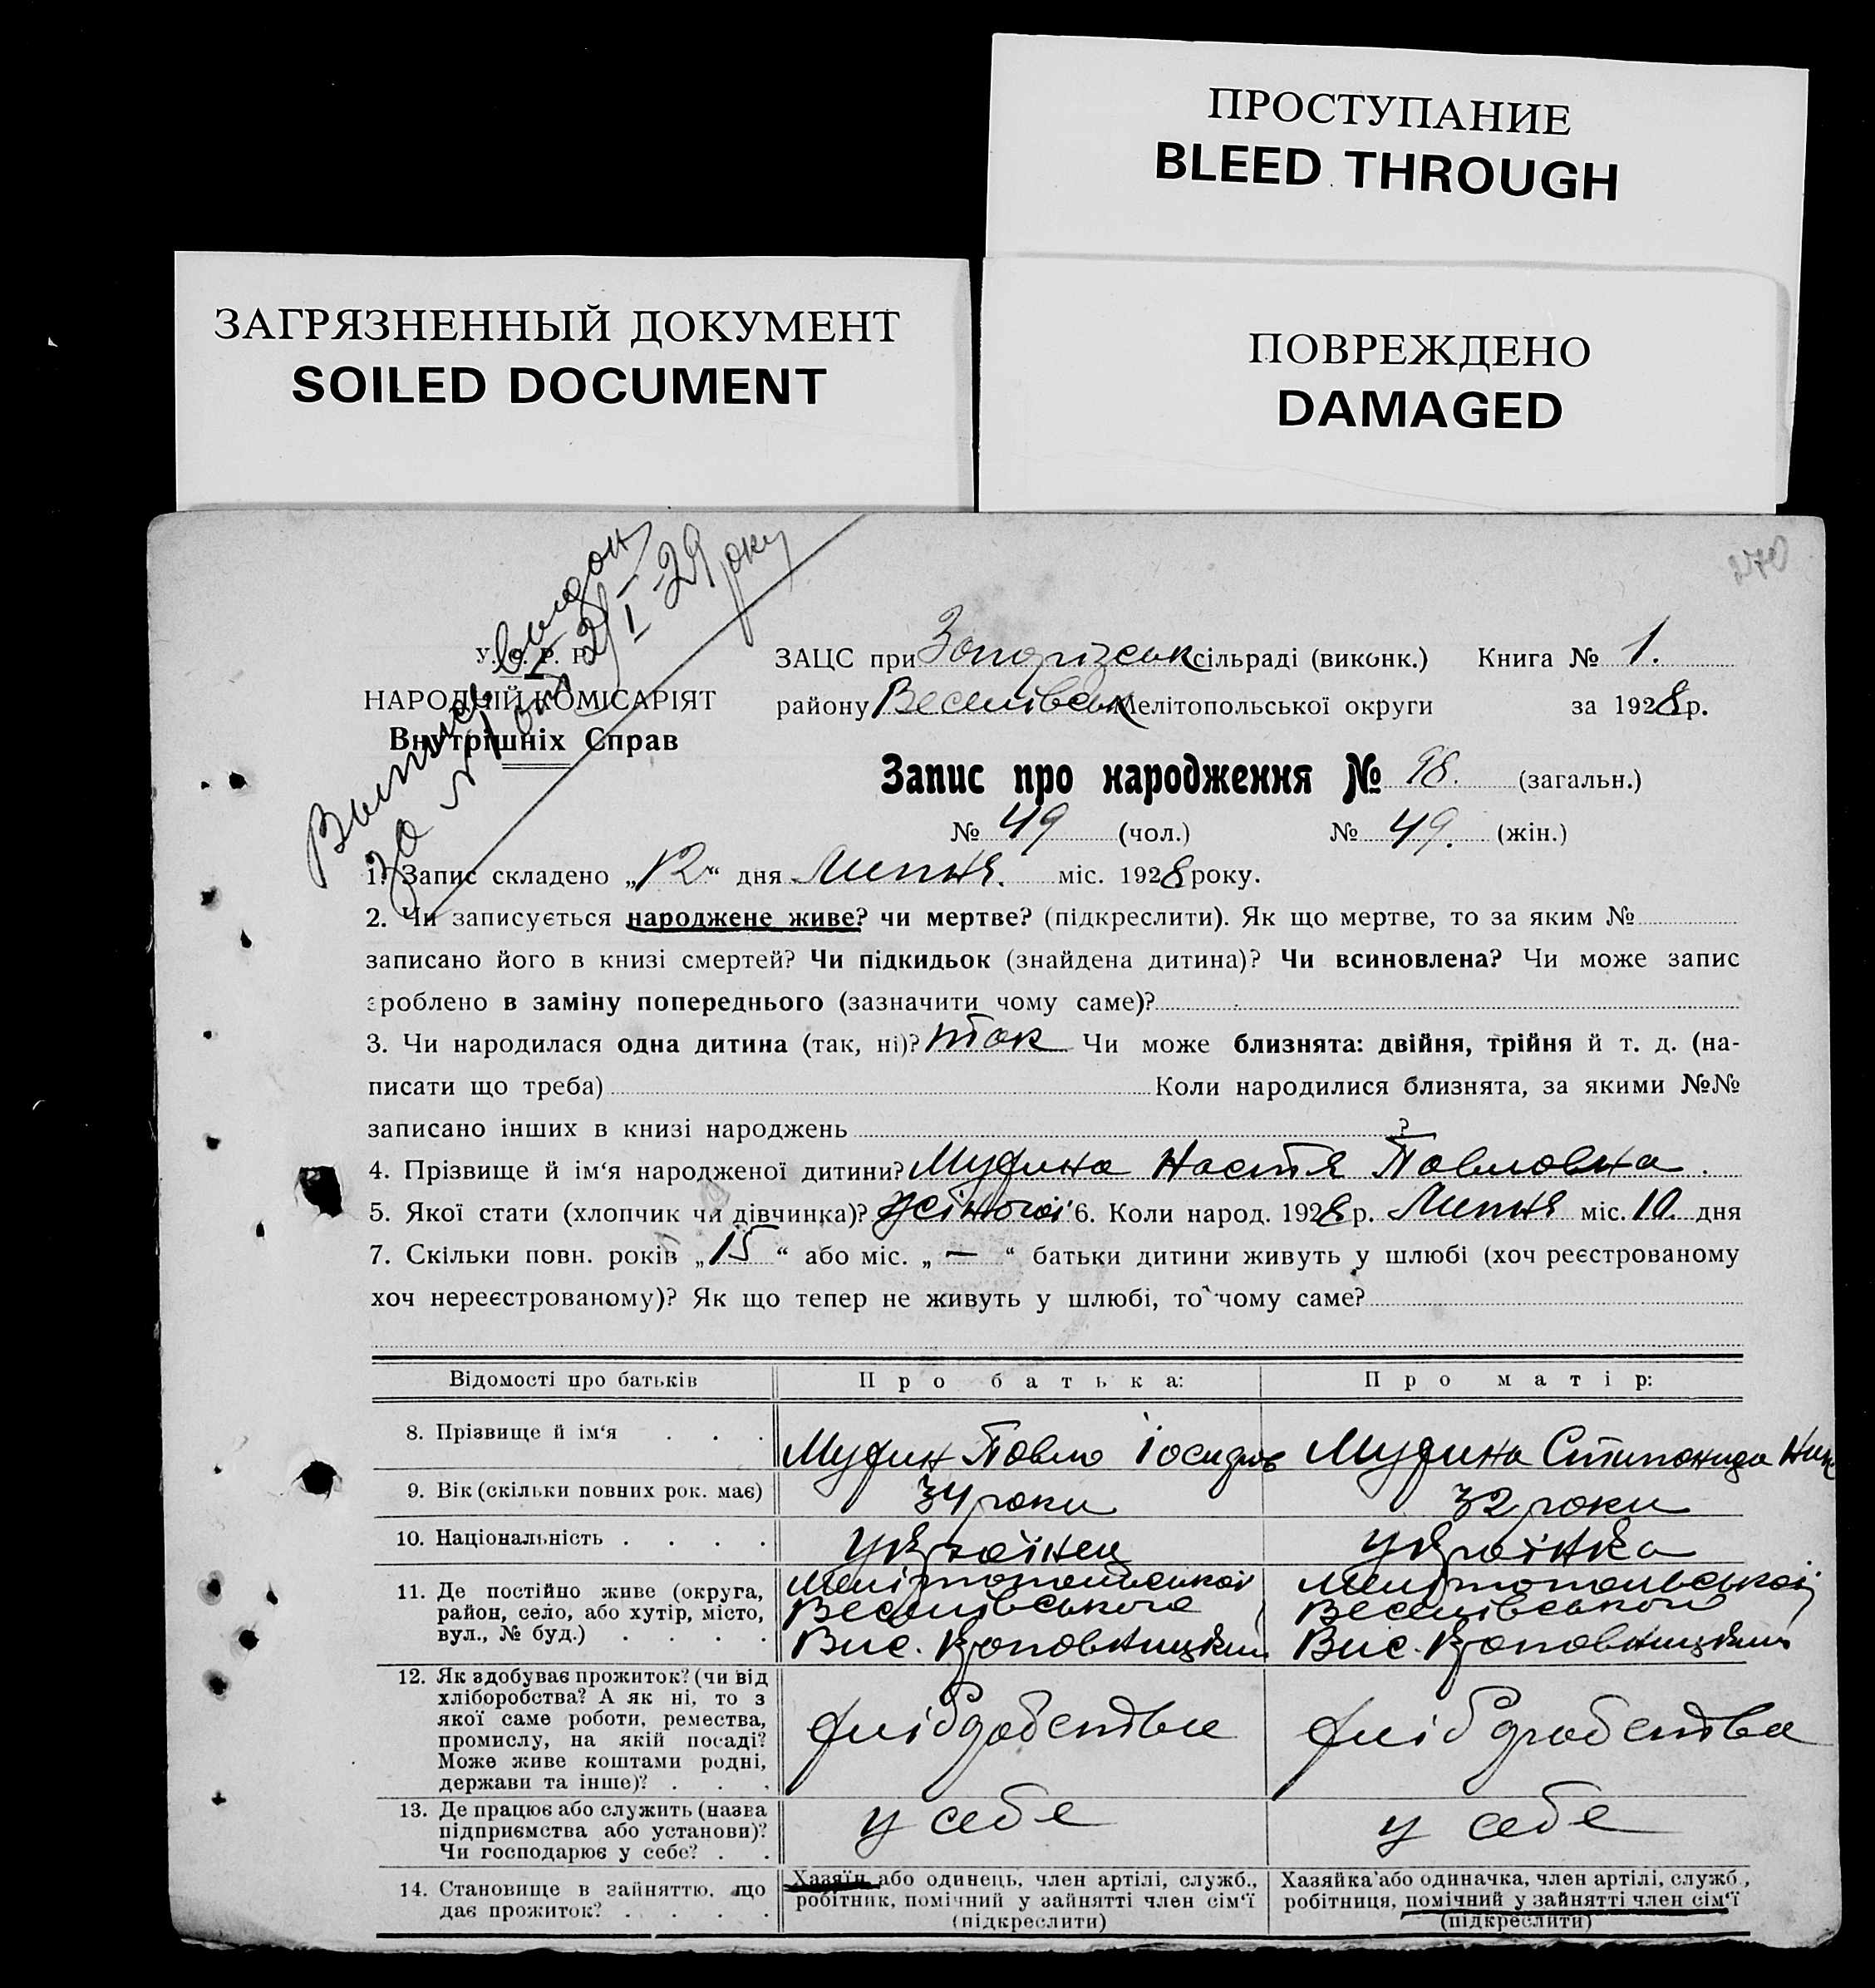 ПРОСТУПАНИЕ
BLEED THROUGH
ЗАГРЯЗНЕННЫЙ ДОКУМЕНТ
SOILED DOCUMENT
ПОВРЕЖДЕНО
DAMAGED
270
Выпись выдан
за № 1 от 21/I-29 року
У. С. Р. Р.
НАРОДНІЙ КОМІСАРІЯТ
Внутрішніх Справ
ЗАЦС при Запорізськ сільраді (виконк.) Книга № 1.
району Веселівськ Мелітопольської округи за 1928 р.
Запис про народження № 98. (загальн.)
№ 49 (чол.) № 49. (жін.)
1. Запис складено „12“ дня Липня. міс. 1928 року.
2. Чи записується народжене живе? чи мертве? (підкреслити). Як що мертве, то за яким №
записано його в книзі смертей? Чи підкидьок (знайдена дитина)? Чи всиновлена? Чи може запис
зроблено в заміну попереднього (зазначити чому саме)?
3. Чи народилася одна дитина (так, ні)? так Чи може близнята: двійня, трійня й т. д. (на-
писати що треба) Коли народилися близнята, за якими №№
записано інших в книзі народжень ?
4. Прізвище й ім‘я народженої дитини? Настя Павловна.
5. Якої стати (хлопчик чи дівчинка)? жіночої 6. Коли народ. 1928 р. Липня міс. 10. дня
7. Скільки повн. років „15“ або міс. „—“ батьки дитини живуть у шлюбі (хоч реєстрованому
хоч нереєстрованому)? Як що тепер не живуть у шлюбі, то чому саме?
Відомості про батьків Про батька: Про матір:
8. Прізвище й ім‘я . . . Павло Іосипов
9. Вік (скільки повних рок. має) 34 роки 32 роки
10. Національність . . . . українец українка
11. Де постійно живе (округа, Мелітопольської Мелітопольської
район, село, або хутір, місто, Веселівського Веселівського
вул., № буд.) . . . . Вис.  Вис.
12. Як здобуває прожиток? (чи від
хліборобства? А як ні, то з
якої саме роботи, ремества,
промислу, на якій посаді?
Може живе коштами родні,
держави та інше)? . . .
13. Де працює або служить (назва у себе у себе
підприємства або установи)?
Чи господарює у себе? . .
14. Становище в зайняттю, що Хазяїн або одинець, член артілі, служб., Хазяйка або одиначка, член артілі, служб.,
дає прожиток? . . . . робітник, помічний у зайнятті член сім‘ї робітниця, помічний у зайнятті член сім‘ї
(підкреслити) (підкреслити)